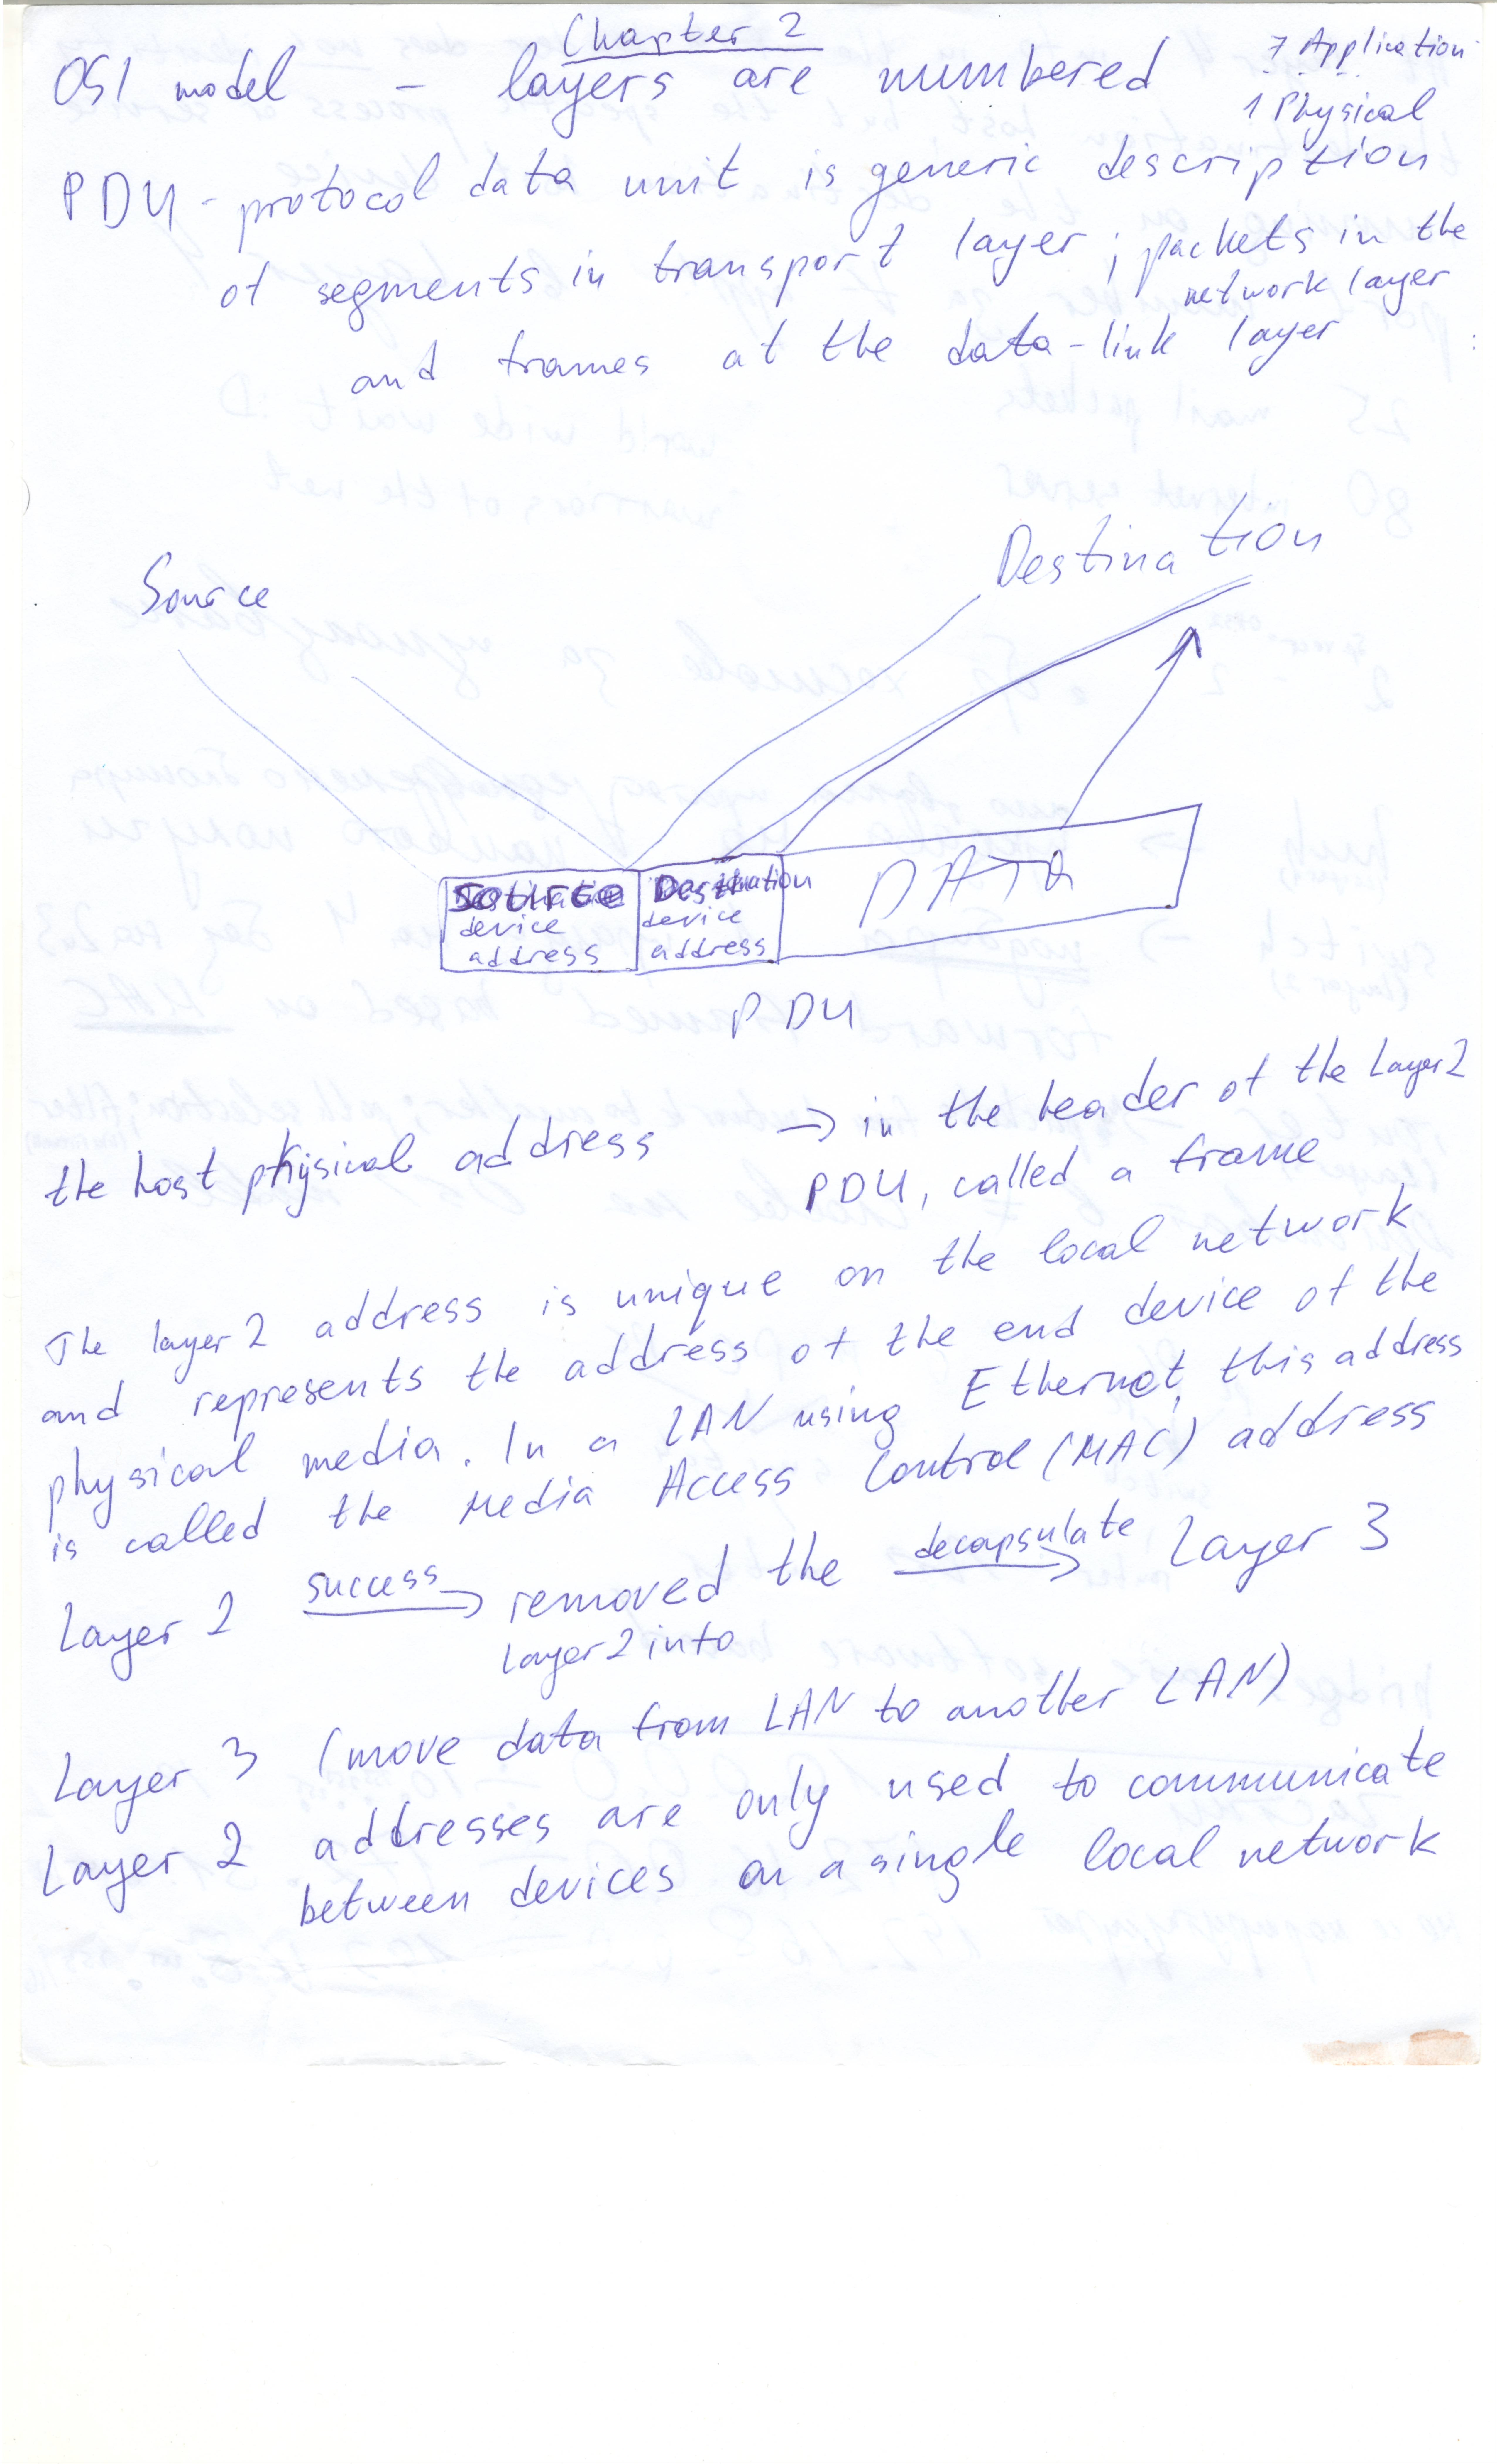 Chapter 2
OSI model - layers are numbered
7 Application
1 Physical
PDU - protocol data unit is generic description
of segments in transport layer; packets in the
network layer
and frames at the data-link layer
Source
Destination
SOURCE
device
address
Destination
device
address
DATA
PDU
the host physical address → in the header of the Layer 2
PDU, called a frame
The layer 2 address is unique on the local network
and represents the address of the end device of the
physical media. In a LAN using Ethernet, this address
is called the Media Access Control (MAC) address
Layer 2 success → removed the decapsulate → Layer 3
layer 2 into
Layer 3 (move data from LAN to another LAN)
Layer 2 addresses are only used to communicate
between devices on a single local network